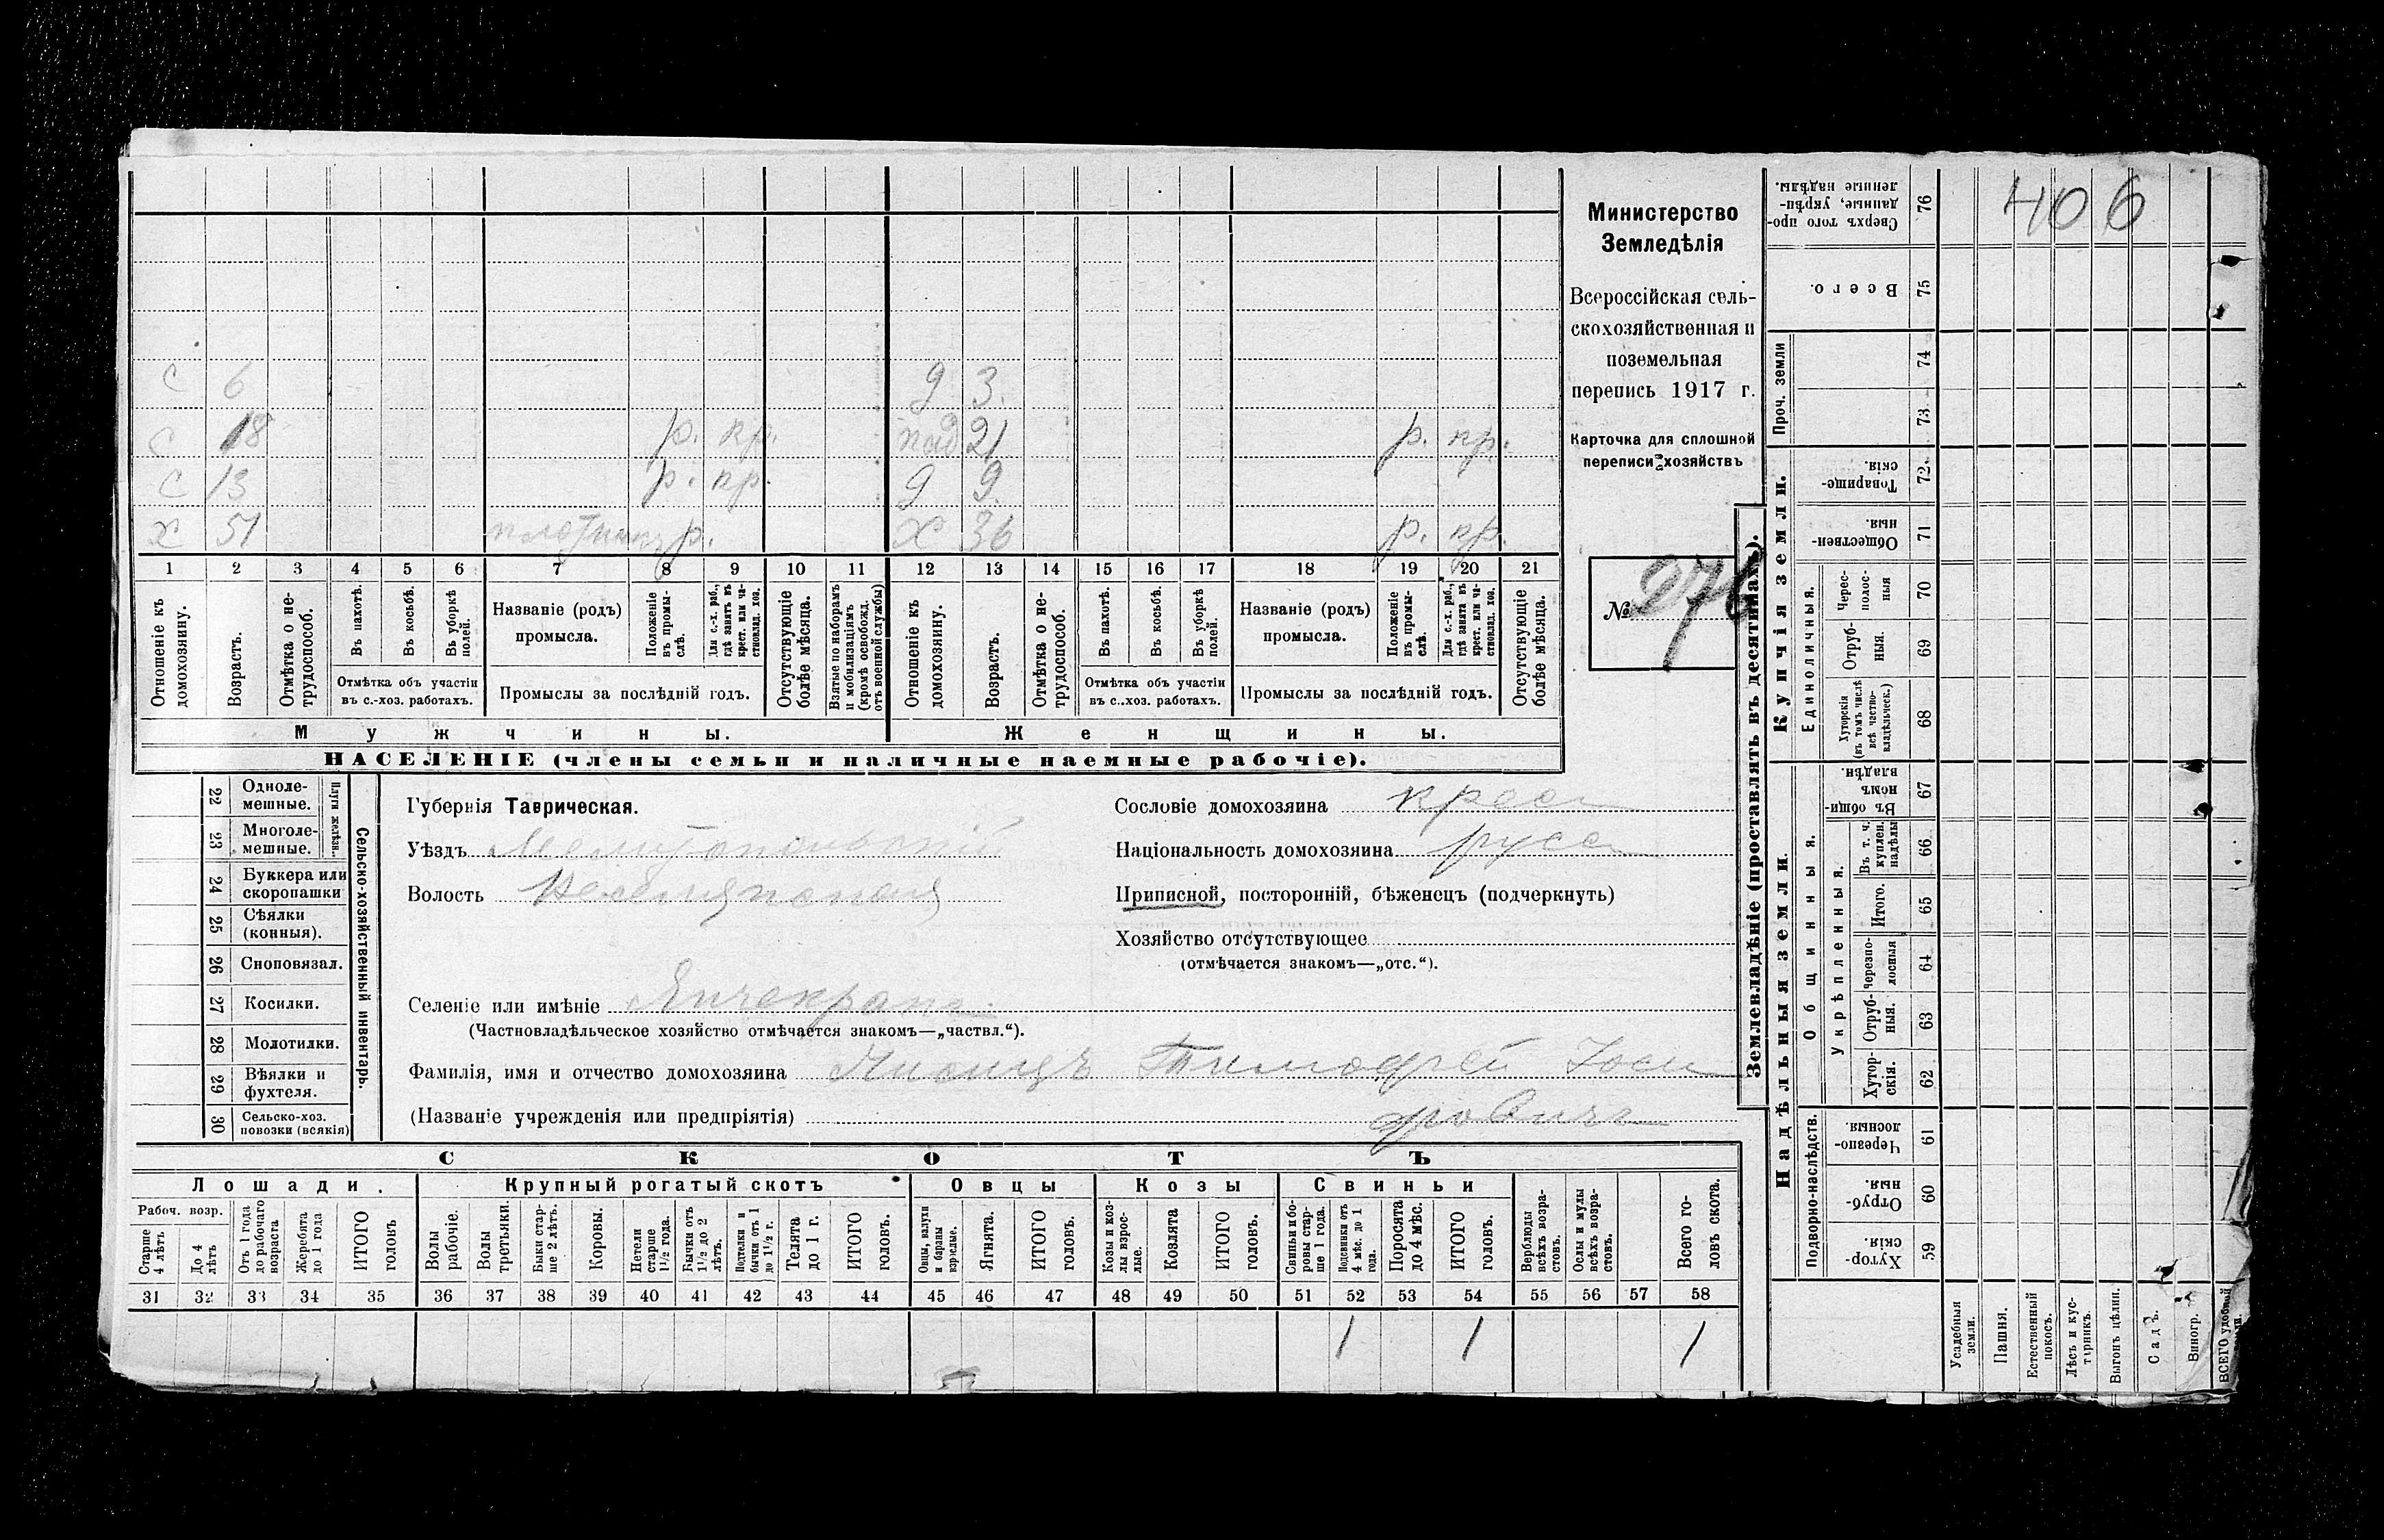 С 6 д 3.
С 18 р. кр. пад 21 р. кр.
С 13 р. кр. д 9
Х 51 плотникъ р. Х 36 р. кр.
1 2 3 4 5 6 7 8 9 10 11 12 13 14 15 16 17 18 19 20 21
Отношеніе къ домохозяину.
Возрастъ.
Отмѣтка о нетрудоспособ.
Въ пахотѣ.
Въ косьбѣ.
Въ уборкѣ полей.
Отмѣтка объ участіи
въ с.-хоз. работахъ.
Названіе (родъ)
промысла.
Положеніе въ промыслѣ.
Для с.-х. раб., гдѣ занятъ въ крест. или частновлад. хоз.
Промыслы за послѣдній годъ.
Отсутствующіе болѣе мѣсяца.
Взятые по наборамъ и мобилизаціямъ (кромѣ освобожд. отъ военной службы)
Отношеніе къ домохозяину.
Возрастъ.
Отмѣтка о нетрудоспособ.
Въ пахотѣ.
Въ косьбѣ.
Въ уборкѣ полей.
Отмѣтка объ участіи
въ с.-хоз. работахъ.
Названіе (родъ)
промысла.
Положеніе въ промыслѣ.
Для с.-х. раб., гдѣ занята въ крест. или частновлад. хоз.
Промыслы за послѣдній годъ.
Отсутствующіе болѣе мѣсяца.
Мужчины.
Женщины.
НАСЕЛЕНІЕ (члены семьи и наличные наемные рабочіе).
Министерство
Земледѣлія
Всероссійская сель-
скохозяйственная и
поземельная
перепись 1917 г.
Карточка для сплошной
переписи хозяйствъ
№ 276
22 Однолемешные.
23 Многолемешные.
Плуги желѣзн.
24 Буккера или скоропашки
25 Сѣялки (конныя).
26 Сноповязал.
27 Косилки.
28 Молотилки.
29 Вѣялки и фухтеля.
30 Сельско-хоз. повозки (всякія)
Сельско-хозяйственный инвентарь.
Губернія Таврическая.
Уѣздъ Мелитопольскій
Волость
Селеніе или имѣніе Янчекракъ
(Частновладѣльческое хозяйство отмѣчается знакомъ—„частвл.“).
Фамилія, имя и отчество домохозяина Тимофей Іоси
(Названіе учрежденія или предпріятія) фовичъ
Сословіе домохозяина крест
Національность домохозяина русс
Приписной, посторонній, бѣженецъ (подчеркнуть)
Хозяйство отсутствующее
(отмѣчается знакомъ—„отс.“).
СКОТЪ
Лошади.
Крупный рогатый скотъ
Овцы
Козы
Свиньи
Рабоч. возр.
Старше 4 лѣтъ
До 4 лѣтъ
Отъ 1 года до рабочаго возраста
Жеребята до 1 года
ИТОГО головъ
Волы рабочіе.
Волы третьяки.
Быки старше 2 лѣтъ.
Коровы.
Нетели старше 1½ года.
Бычки отъ 1½ до 2 лѣтъ.
Подтелки и бычки отъ 1 до 1½ г.
Телята до 1 г.
ИТОГО головъ.
Овцы, валухи и бараны взрослые.
Ягнята.
ИТОГО головъ.
Козы и козлы взрослые.
Козлята
ИТОГО головъ.
Свиньи и боровы старше 1 года.
Подсвинки отъ 4 мѣс. до 1 года.
Поросята до 4 мѣс.
ИТОГО головъ.
Верблюды всѣхъ возрастовъ.
Ослы и мулы всѣхъ возрастовъ.
Всего головъ скота.
31 32 33 34 35 36 37 38 39 40 41 42 43 44 45 46 47 48 49 50 51 52 53 54 55 56 57 58
1 1 1
Землевладѣніе (проставлять въ десятинахъ).
Купчія земли.
Надѣльныя земли.
406
Сверхъ того проданные, укрѣпленные надѣлы. 76
Всего. 75
Проч. земли
74
73
Товарищескія. 72
Общественныя. 71
Единоличныя.
Чересполосныя 70
Отрубныя. 69
Хуторскія (въ томъ числѣ всѣ частновладѣльческ.) 68
Общинныя.
Въ общинномъ владѣн. 67
Укрѣпленныя.
Въ т. ч. куплен. надѣлы 66
Итого. 65
Черезполосныя 64
Отрубныя. 63
Хуторскія. 62
Подворно-наслѣдств.
Черезполосныя. 61
Отрубныя. 60
Хуторскія. 59
Усадебныя земли.
Пашня.
Естественный покосъ.
Лѣсъ и кустарникъ.
Выгонъ цѣлин.
Садъ.
Виногр.
ВСЕГО удобной земли.